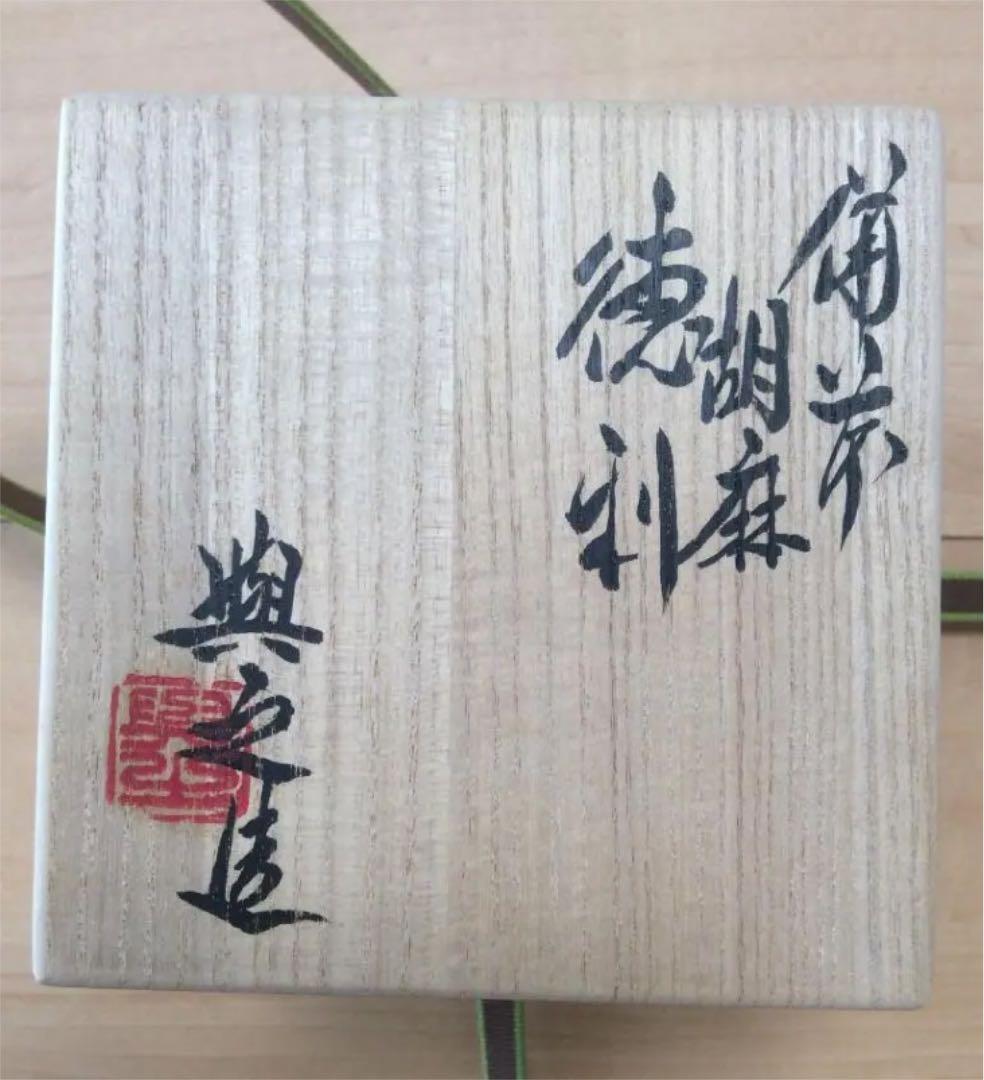 備前
胡麻
徳利
興之造